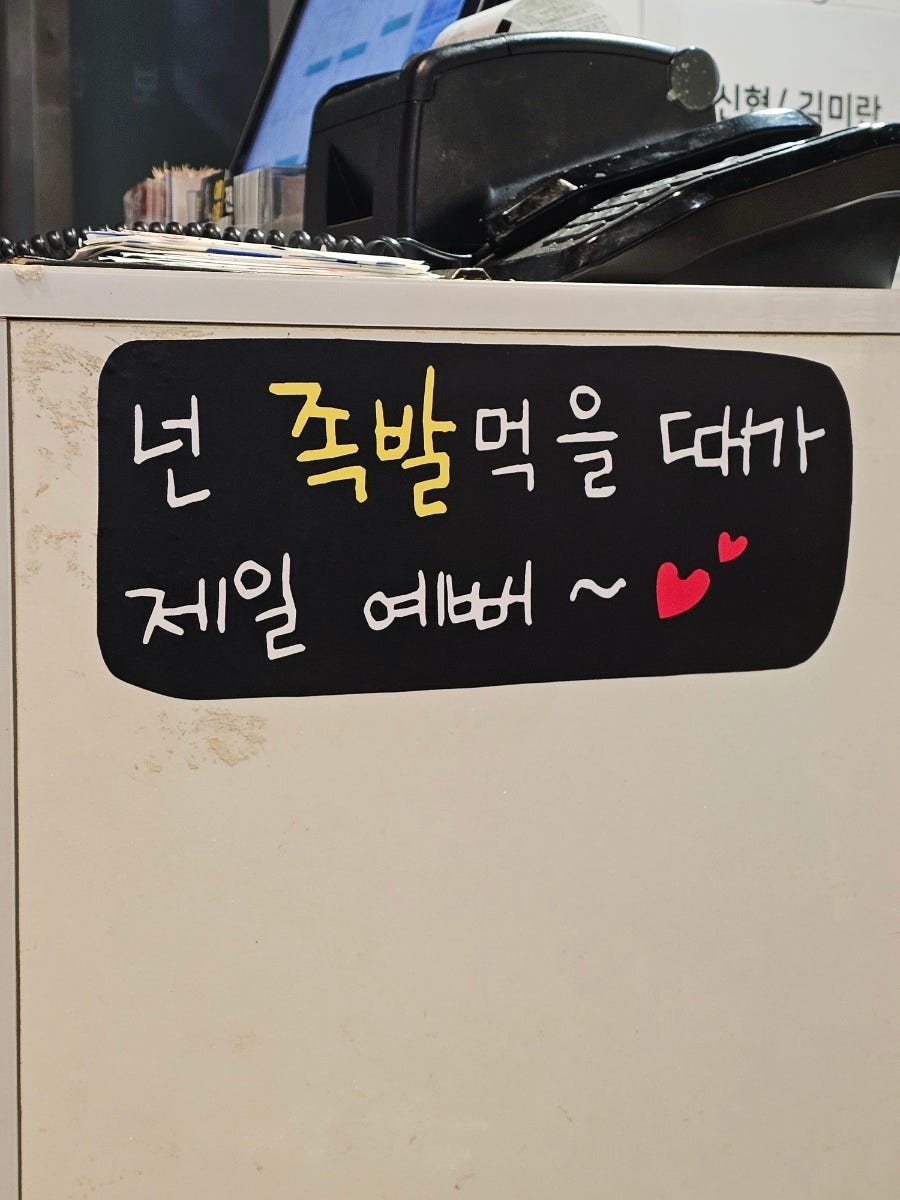 신협 / 김미란
넌 족발 먹을 때가
제일 예뻐~